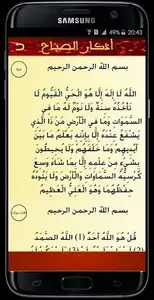 SAMSUNG
20:43
أذكار الصباح
بسم الله الرحمن الرحيم
اللَّهُ لَا إِلَهَ إِلَّا هُوَ الْحَيُّ الْقَيُّومُ لَا
تَأْخُذُهُ سِنَةٌ وَلَا نَوْمٌ لَهُ مَا فِي
السَّمَاوَاتِ وَمَا فِي الْأَرْضِ مَنْ ذَا الَّذِي
يَشْفَعُ عِنْدَهُ إِلَّا بِإِذْنِهِ يَعْلَمُ مَا بَيْنَ
أَيْدِيهِمْ وَمَا خَلْفَهُمْ وَلَا يُحِيطُونَ
بِشَيْءٍ مِنْ عِلْمِهِ إِلَّا بِمَا شَاءَ وَسِعَ
كُرْسِيُّهُ السَّمَاوَاتِ وَالْأَرْضَ وَلَا يَئُودُهُ
حِفْظُهُمَا وَهُوَ الْعَلِيُّ الْعَظِيمُ
بسم الله الرحمن الرحيم
قُلْ هُوَ اللَّهُ أَحَدٌ (1) اللَّهُ الصَّمَدُ